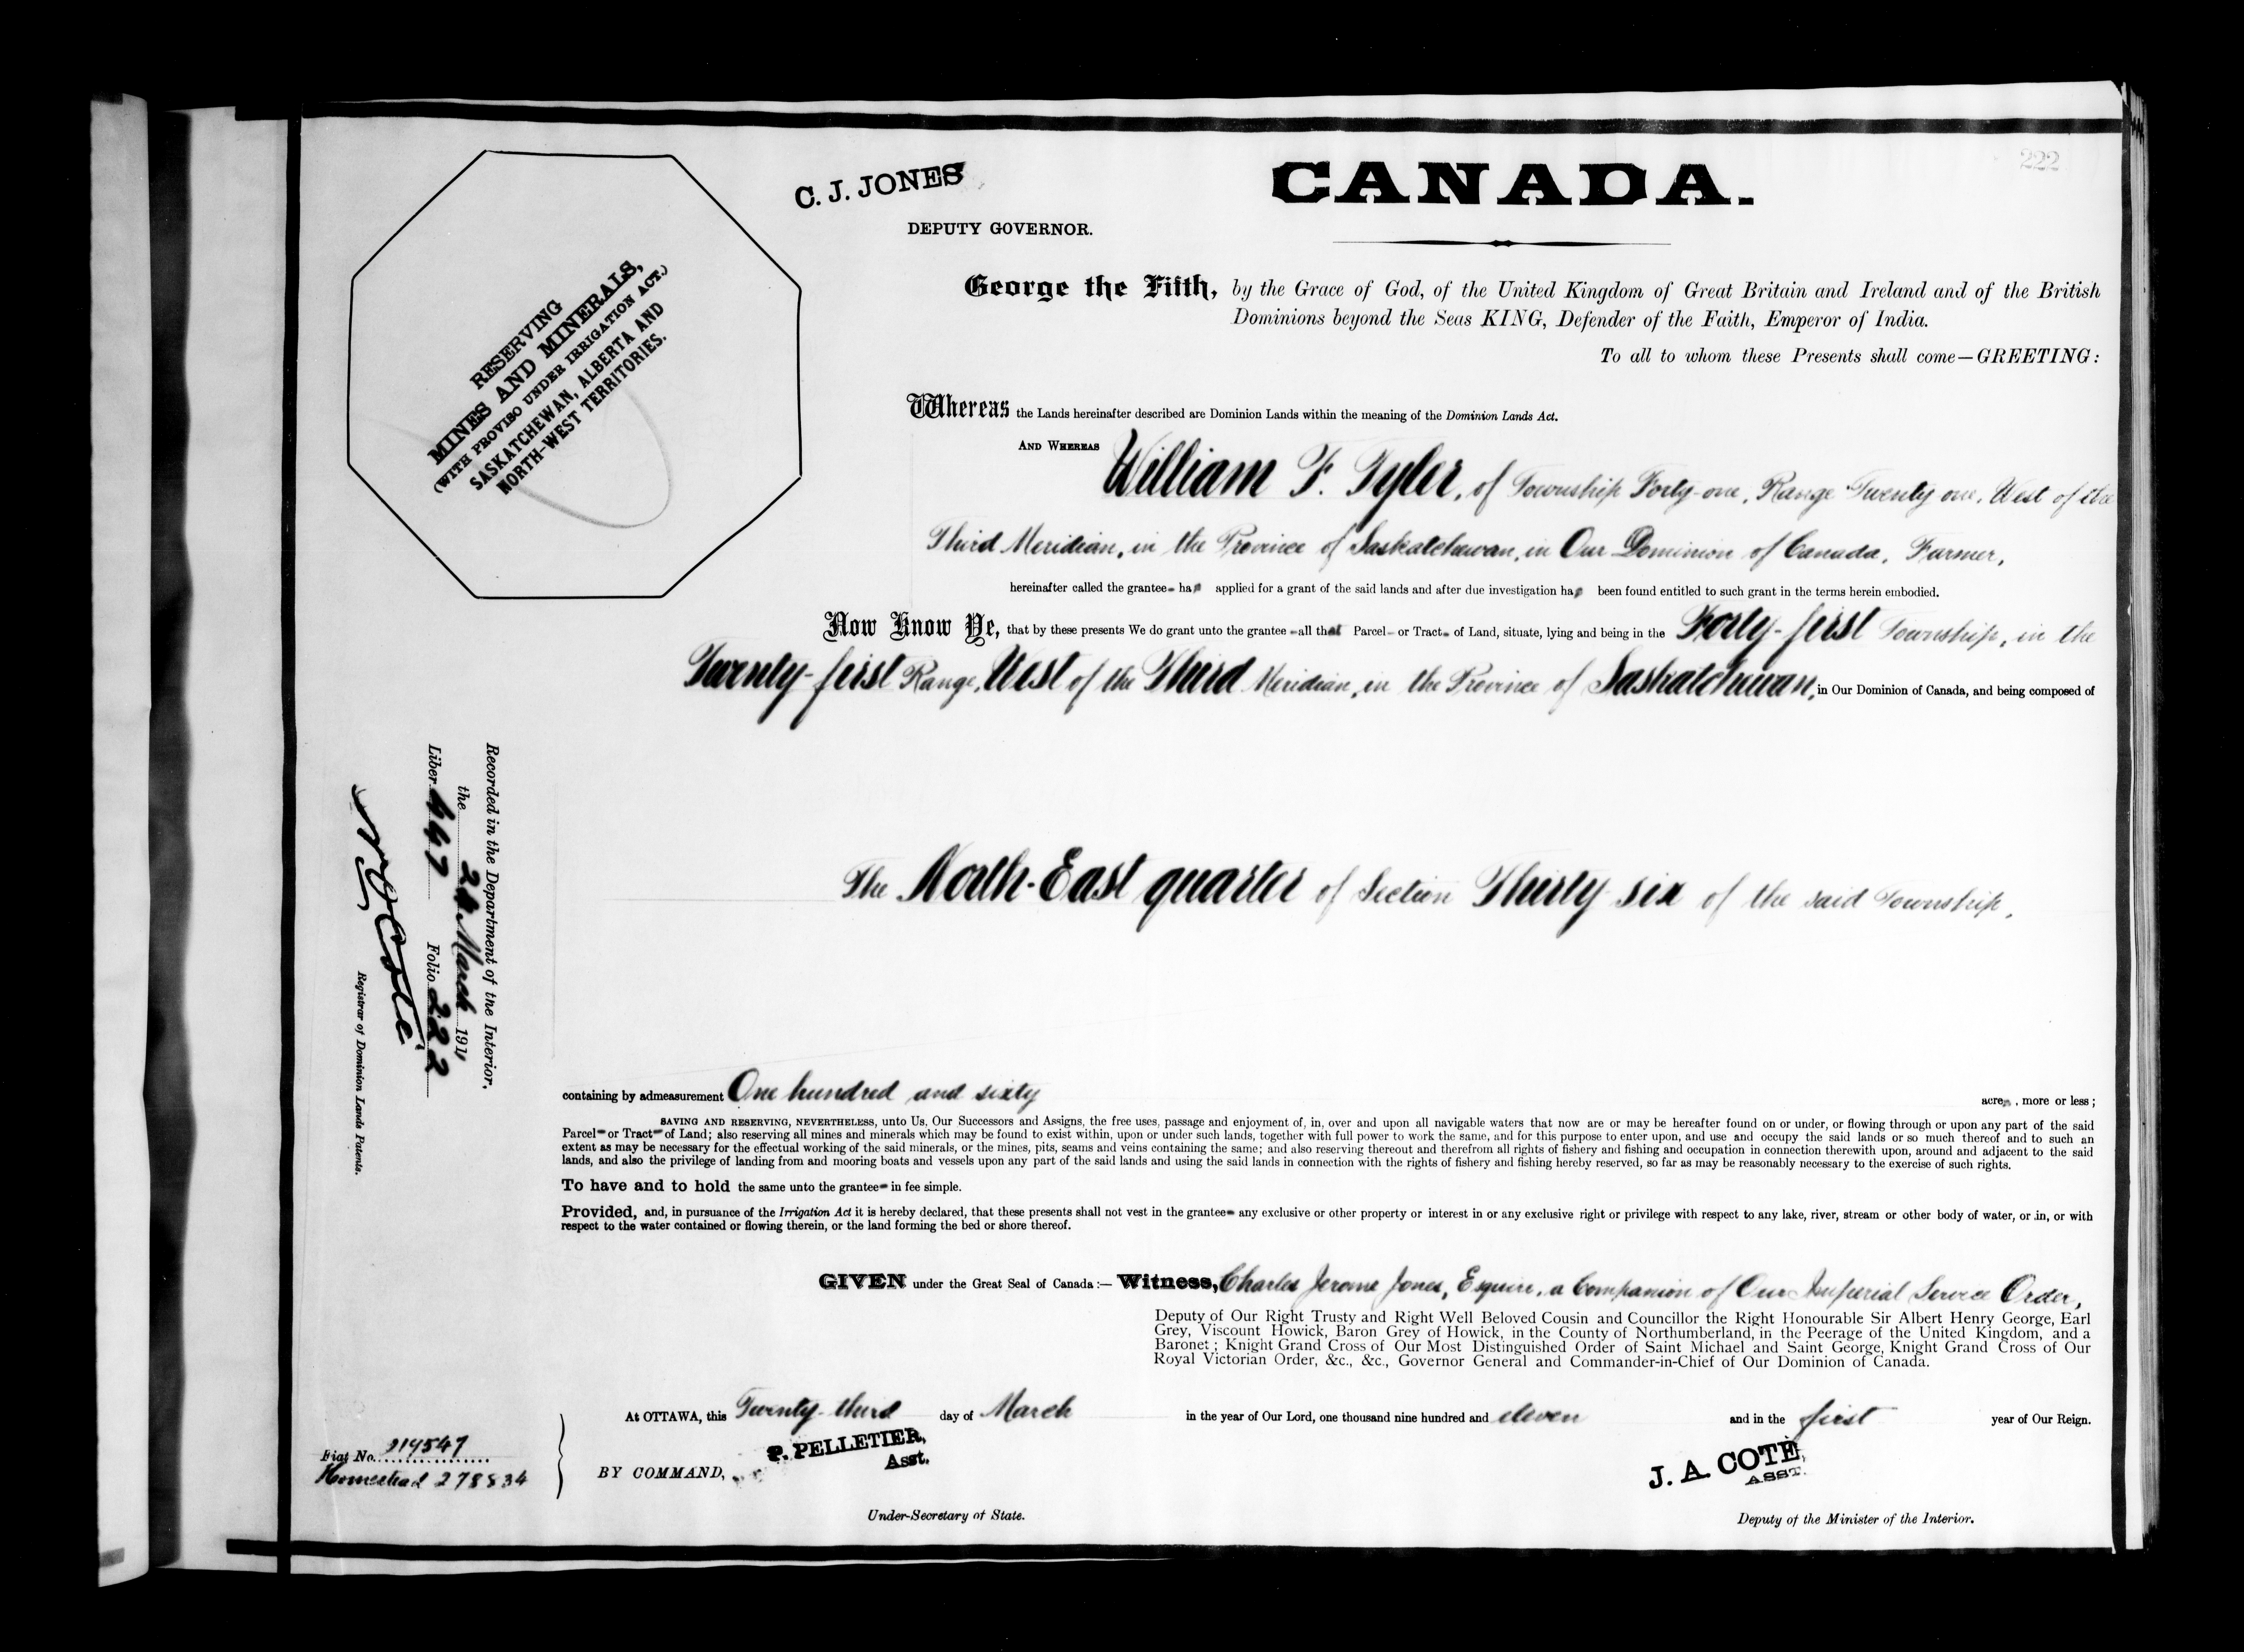 222
C. J. JONES
DEPUTY GOVERNOR.
CANADA.
RESERVING
MINES AND MINERALS,
(WITH PROVISO UNDER IRRIGATION ACT.)
SASKATCHEWAN, ALBERTA AND
NORTH-WEST TERRITORIES.
George the Fifth, by the Grace of God, of the United Kingdom of Great Britain and Ireland and of the British
Dominions beyond the Seas KING, Defender of the Faith, Emperor of India.
To all to whom these Presents shall come—GREETING:
Whereas the Lands hereinafter described are Dominion Lands within the meaning of the Dominion Lands Act.
AND WHEREAS William F. Tyler, of Township Forty-one, Range Twenty one, West of the
Third Meridian, in the Province of Saskatchewan, in Our Dominion of Canada, Farmer,
hereinafter called the grantee ha applied for a grant of the said lands and after due investigation ha been found entitled to such grant in the terms herein embodied.
Now Know Ye, that by these presents We do grant unto the grantee all that Parcel or Tract of Land, situate, lying and being in the Forty-first Township, in the
Twenty-first Range, West of the Third Meridian, in the Province of Saskatchewan, in Our Dominion of Canada, and being composed of
The North-East quarter of Section Thirty six of the said Township,
Recorded in the Department of the Interior,
the 24 March 1911
Liber 447 Folio 222
N O Coté
Registrar of Dominion Lands Patents.
containing by admeasurement One hundred and sixty acres, more or less;
SAVING AND RESERVING, NEVERTHELESS, unto Us, Our Successors and Assigns, the free uses, passage and enjoyment of, in, over and upon all navigable waters that now are or may be hereafter found on or under, or flowing through or upon any part of the said
Parcel or Tract of Land; also reserving all mines and minerals which may be found to exist within, upon or under such lands, together with full power to work the same, and for this purpose to enter upon, and use and occupy the said lands or so much thereof and to such an
extent as may be necessary for the effectual working of the said minerals, or the mines, pits, seams and veins containing the same; and also reserving thereout and therefrom all rights of fishery and fishing and occupation in connection therewith upon, around and adjacent to the said
lands, and also the privilege of landing from and mooring boats and vessels upon any part of the said lands and using the said lands in connection with the rights of fishery and fishing hereby reserved, so far as may be reasonably necessary to the exercise of such rights.
To have and to hold the same unto the grantee in fee simple.
Provided, and, in pursuance of the Irrigation Act it is hereby declared, that these presents shall not vest in the grantee any exclusive or other property or interest in or any exclusive right or privilege with respect to any lake, river, stream or other body of water, or in, or with
respect to the water contained or flowing therein, or the land forming the bed or shore thereof.
GIVEN under the Great Seal of Canada:— Witness, Charles Jerome Jones, Esquire, a Companion of Our Imperial Service Order,
Deputy of Our Right Trusty and Right Well Beloved Cousin and Councillor the Right Honourable Sir Albert Henry George, Earl
Grey, Viscount Howick, Baron Grey of Howick, in the County of Northumberland, in the Peerage of the United Kingdom, and a
Baronet; Knight Grand Cross of Our Most Distinguished Order of Saint Michael and Saint George, Knight Grand Cross of Our
Royal Victorian Order, &c., &c., Governor General and Commander-in-Chief of Our Dominion of Canada.
At OTTAWA, this Twenty-third day of March in the year of Our Lord, one thousand nine hundred and eleven and in the first year of Our Reign.
Fiat No. 219547
Homestead 278834
BY COMMAND,
P. PELLETIER,
Asst.
Under-Secretary of State.
J. A. COTÉ,
ASST.
Deputy of the Minister of the Interior.